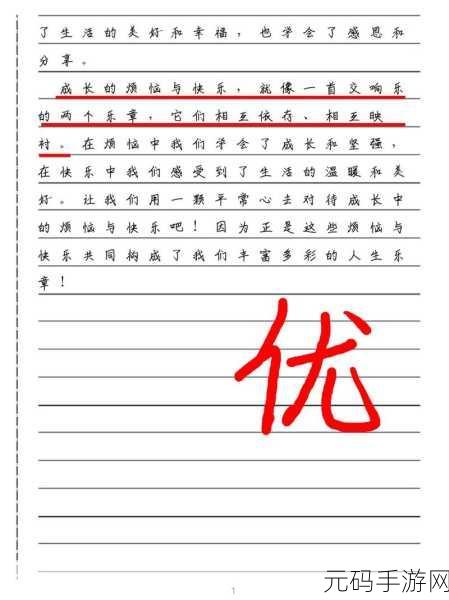 了生活的美好和幸福，也学会了感恩和
分享。
成长的烦恼与快乐，就像一首交响乐
的两个乐章，它们相互依存、相互映
衬。在烦恼中我们学会了成长和坚强，
在快乐中我们感受到了生活的温暖和美
好。让我们用一颗平常心去对待成长中
的烦恼与快乐吧！因为正是这些烦恼与
快乐共同构成了我们丰富多彩的人生乐
章！
优
1
元码手游网